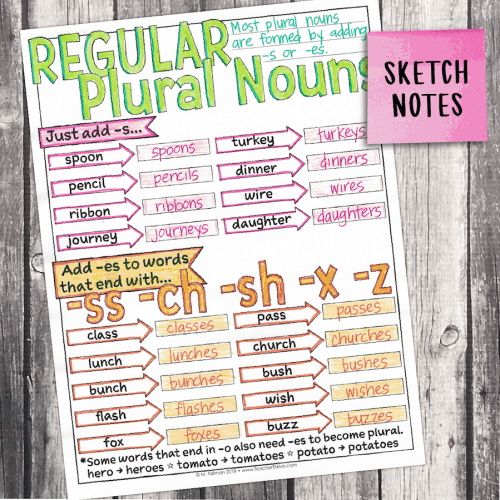 REGULAR
Plural Nouns
Most plural nouns
are formed by adding
-s or -es.
SKETCH
NOTES
Just add -s...
spoon spoons
pencil pencils
ribbon ribbons
journey journeys
turkey turkeys
dinner dinners
wire wires
daughter daughters
Add -es to words
that end with...
-ss -ch -sh -x -z
class classes
lunch lunches
bunch bunches
flash flashes
fox foxes
pass passes
church churches
bush bushes
wish wishes
buzz buzzes
*Some words that end in -o also need -es to become plural.
hero → heroes ☆ tomato → tomatoes ☆ potato → potatoes